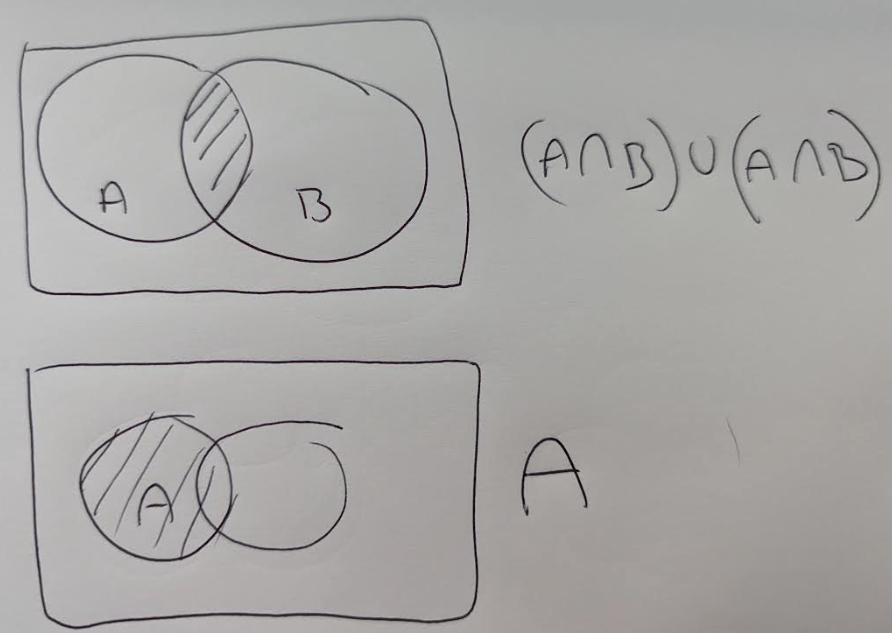 A B (A∩B)∪(A∩B)
A A